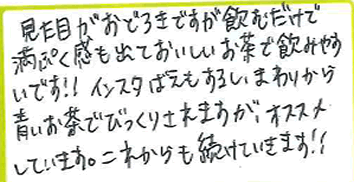 見た目がおどろきですが飲むだけで
満ぷく感も出ておいしいお茶で飲みやす
いです!! インスタばえもするし、まわりから
青いお茶でびっくりされますが、オススメ
しています。これからも続けていきます!!